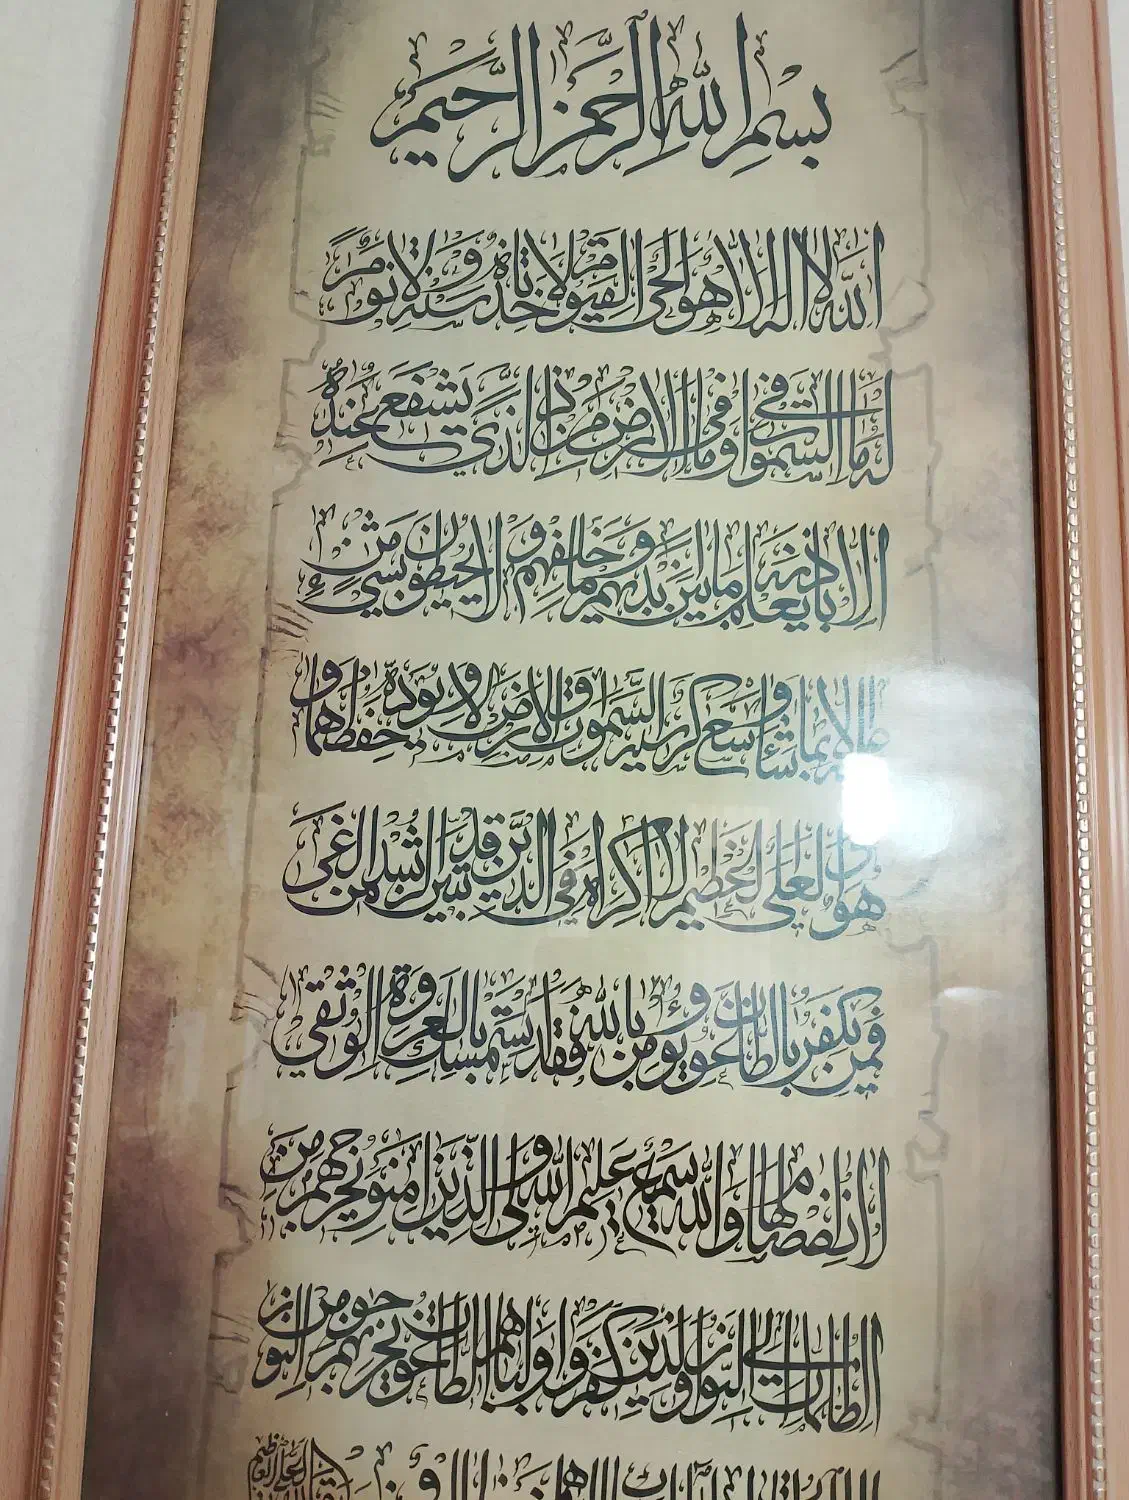 بسم الله الرحمن الرحيم
الله لا اله الا هو الحي القيوم لا تاخذه سنة ولا نوم
له ما في السموات وما في الارض من ذا الذي يشفع عنده
الا باذنه يعلم ما بين يديهم وما خلفهم ولا يحيطون بشيء من
علمه الا بما شاء وسع كرسيه السموات والارض ولا يوده حفظهما و
هو العلي العظيم لا اكراه في الدين قد تبين الرشد من الغي
فمن يكفر بالطاغوت ويومن بالله فقد استمسك بالعروة الوثقى
لا انفصام لها والله سميع عليم الله ولي الذين امنوا يخرجهم من
الظلمات الى النور والذين كفروا اولياهم الطاغوت يخرجونهم من النور